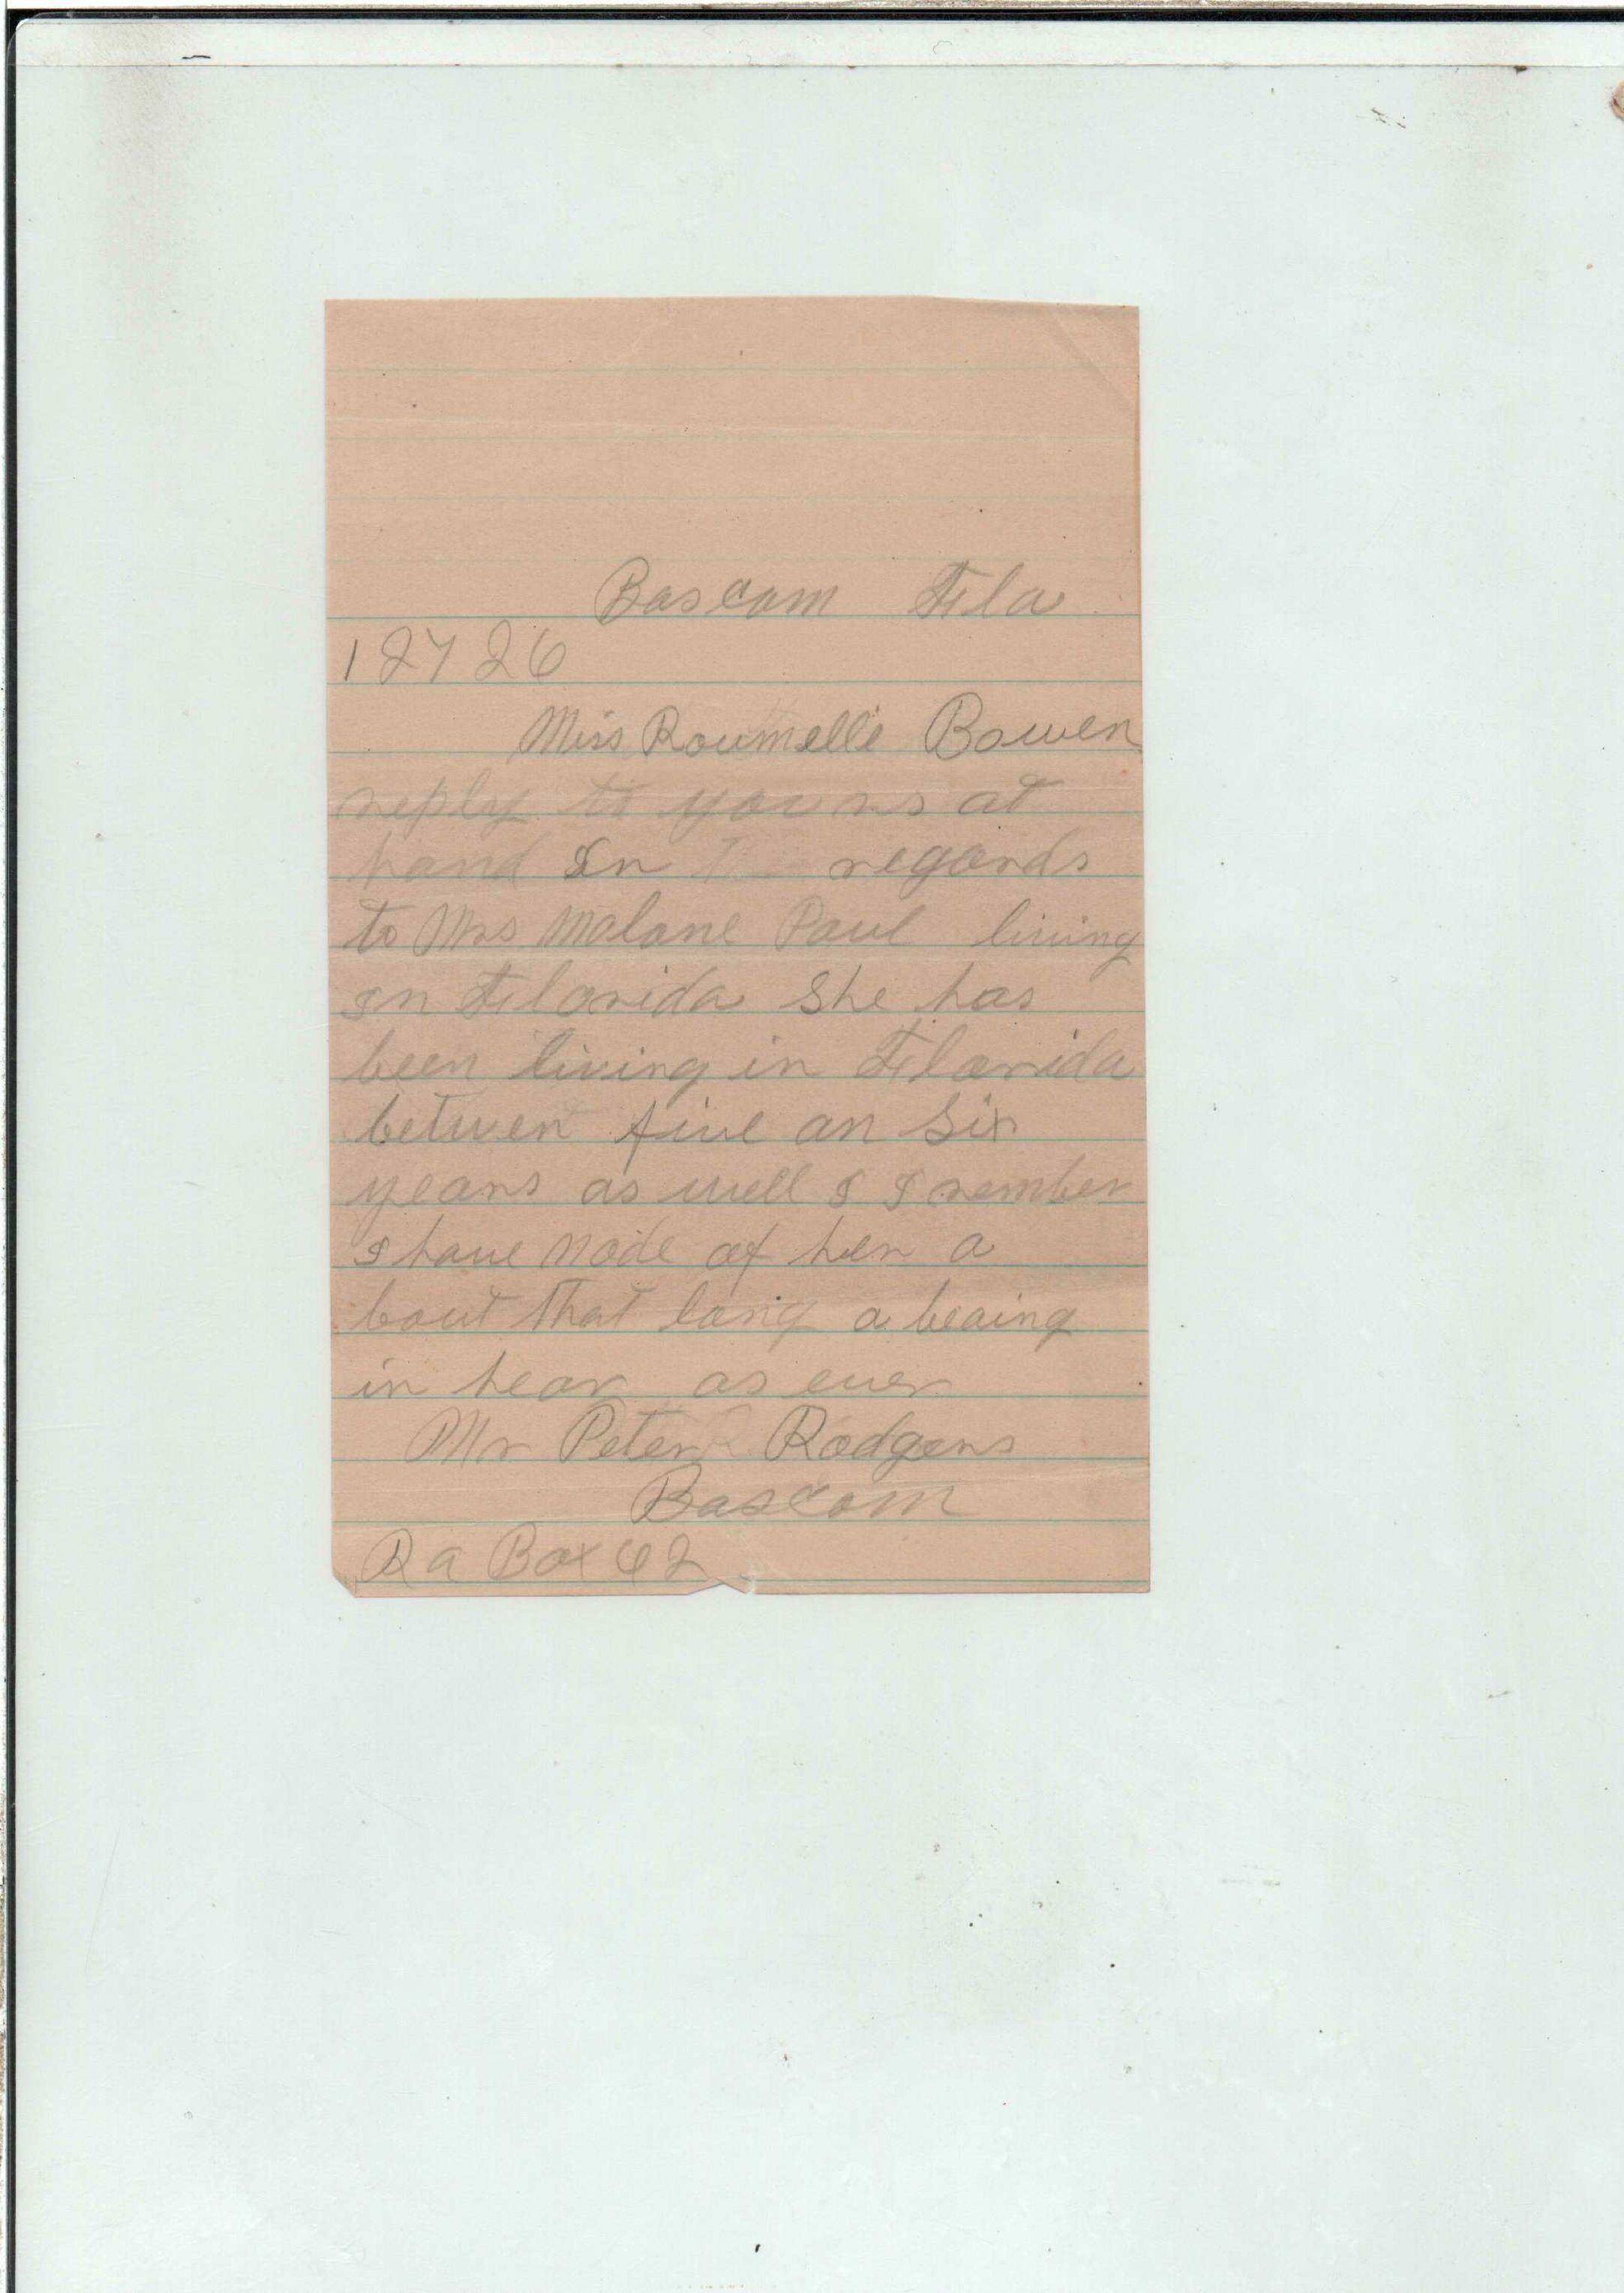 Bascom Fla
1 27 26
Miss Roumelle Bowen
reply to yours at
hand In regards
to Mrs Malone Paul living
In Florida She has
been living in Florida
betwen five an Six
years as well I I rember
I have node of her a
bout that long a beaing
in hear as ever
Mr Peter Rodgers
Bascom
R a Box 62